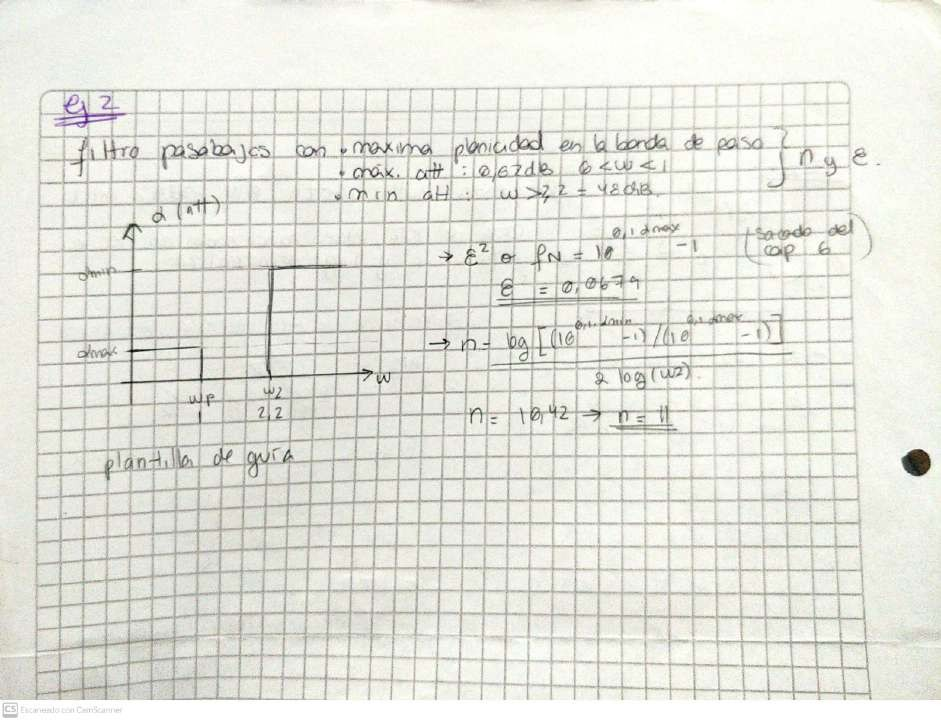 ej 2
filtro pasabajos con • maxima planicidad en la banda de paso } n y ε.
• máx. att : 0,62dB 0<w<1
• min att : w>2,2 = 48dB.
α (att)
αmin
αmax
wp
1
w2
2,2
w
plantilla de guía
→ ε² o fN = 10^0,1 αmax - 1 (sacado del cap 6)
ε = 0,0679
→ n = log [(10^0,1.αmin -1)/(10^0,1 αmax -1)]
2 log(w2).
n = 10,42 → n = 11
CS Escaneado con CamScanner